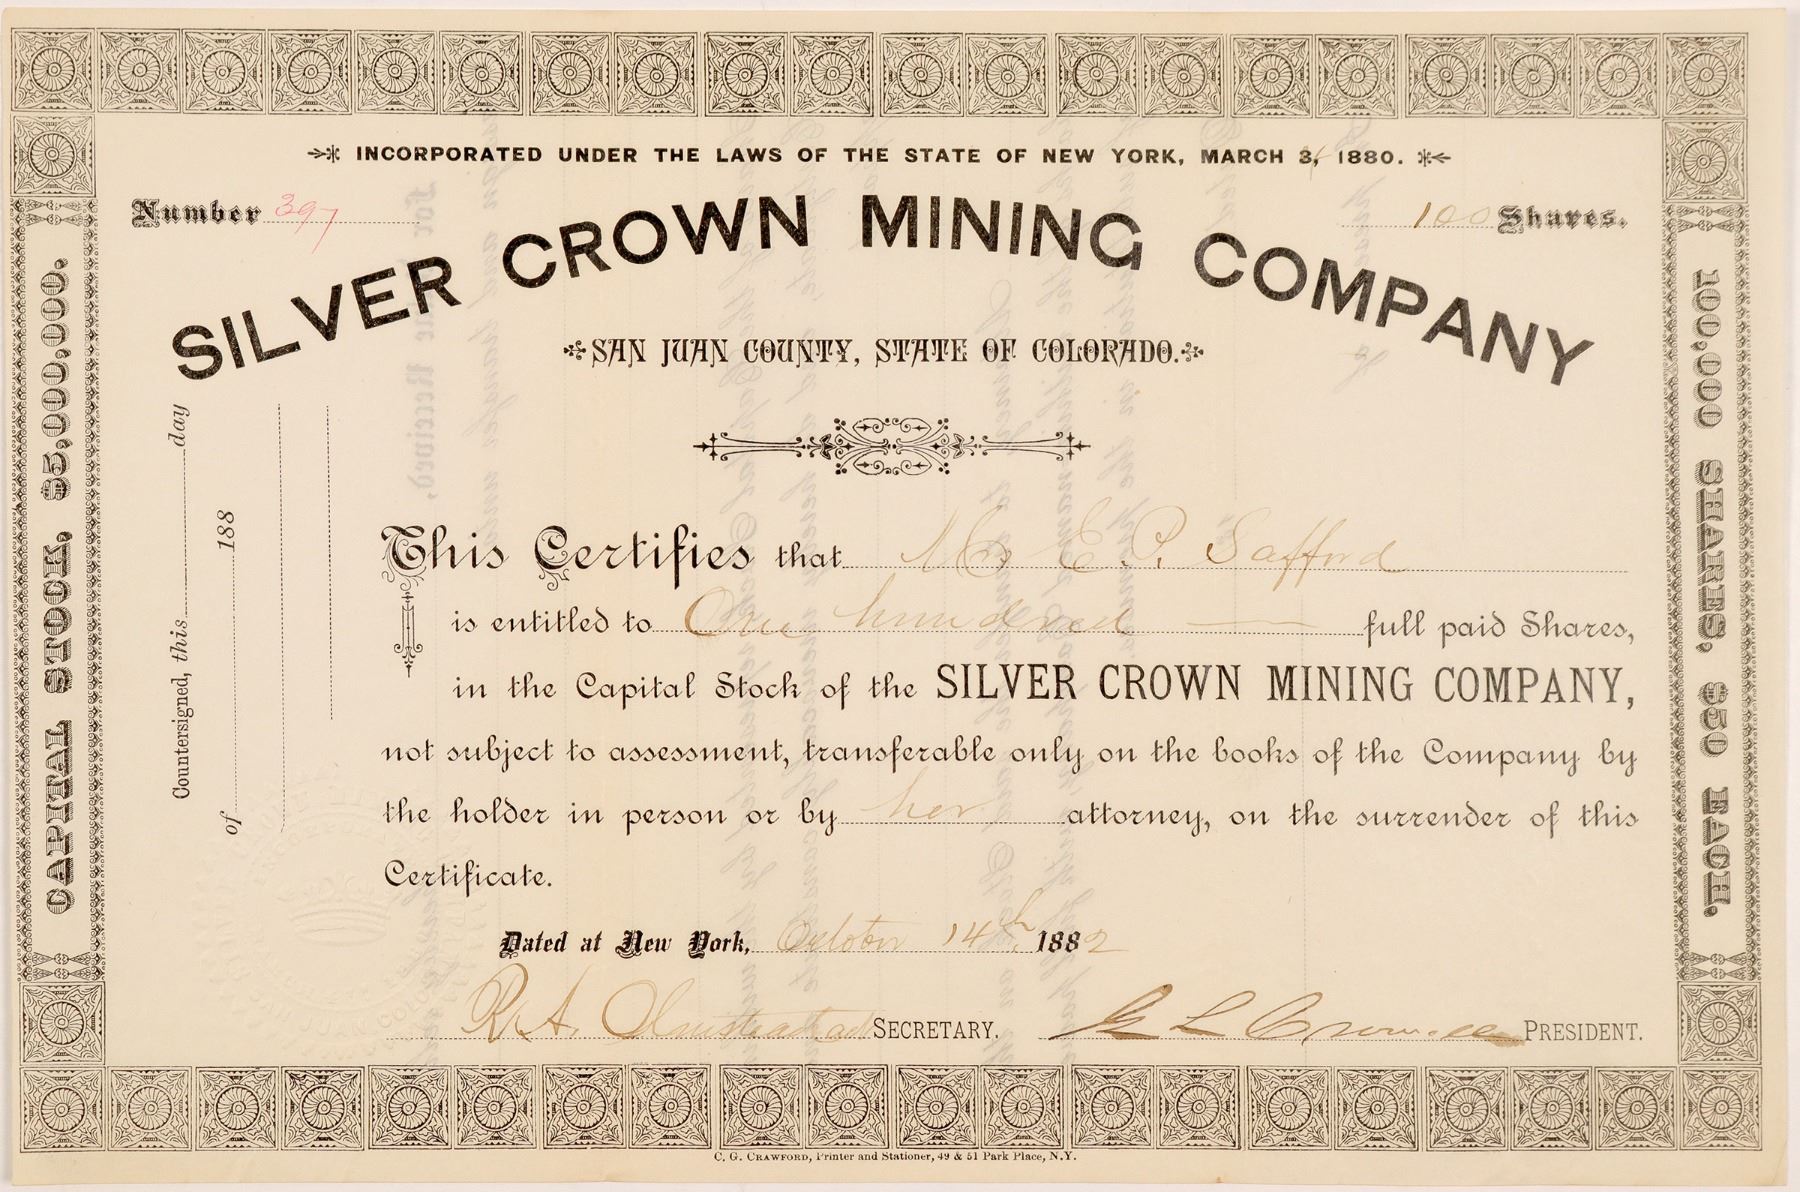 INCORPORATED UNDER THE LAWS OF THE STATE OF NEW YORK, MARCH 3, 1880.
Number 397
100 Shares.
SILVER CROWN MINING COMPANY
SAN JUAN COUNTY, STATE OF COLORADO.
CAPITAL STOCK, $5,000,000.
100,000 SHARES, $50 EACH.
Countersigned, this day
of 188
This Certifies that Mrs E. P. Safford
is entitled to One hundred full paid Shares,
in the Capital Stock of the SILVER CROWN MINING COMPANY,
not subject to assessment, transferable only on the books of the Company by
the holder in person or by her attorney, on the surrender of this
Certificate.
Dated at New York, October 14th 1882
R. A. SECRETARY. G L PRESIDENT.
C. G. CRAWFORD, Printer and Stationer, 49 & 51 Park Place, N.Y.